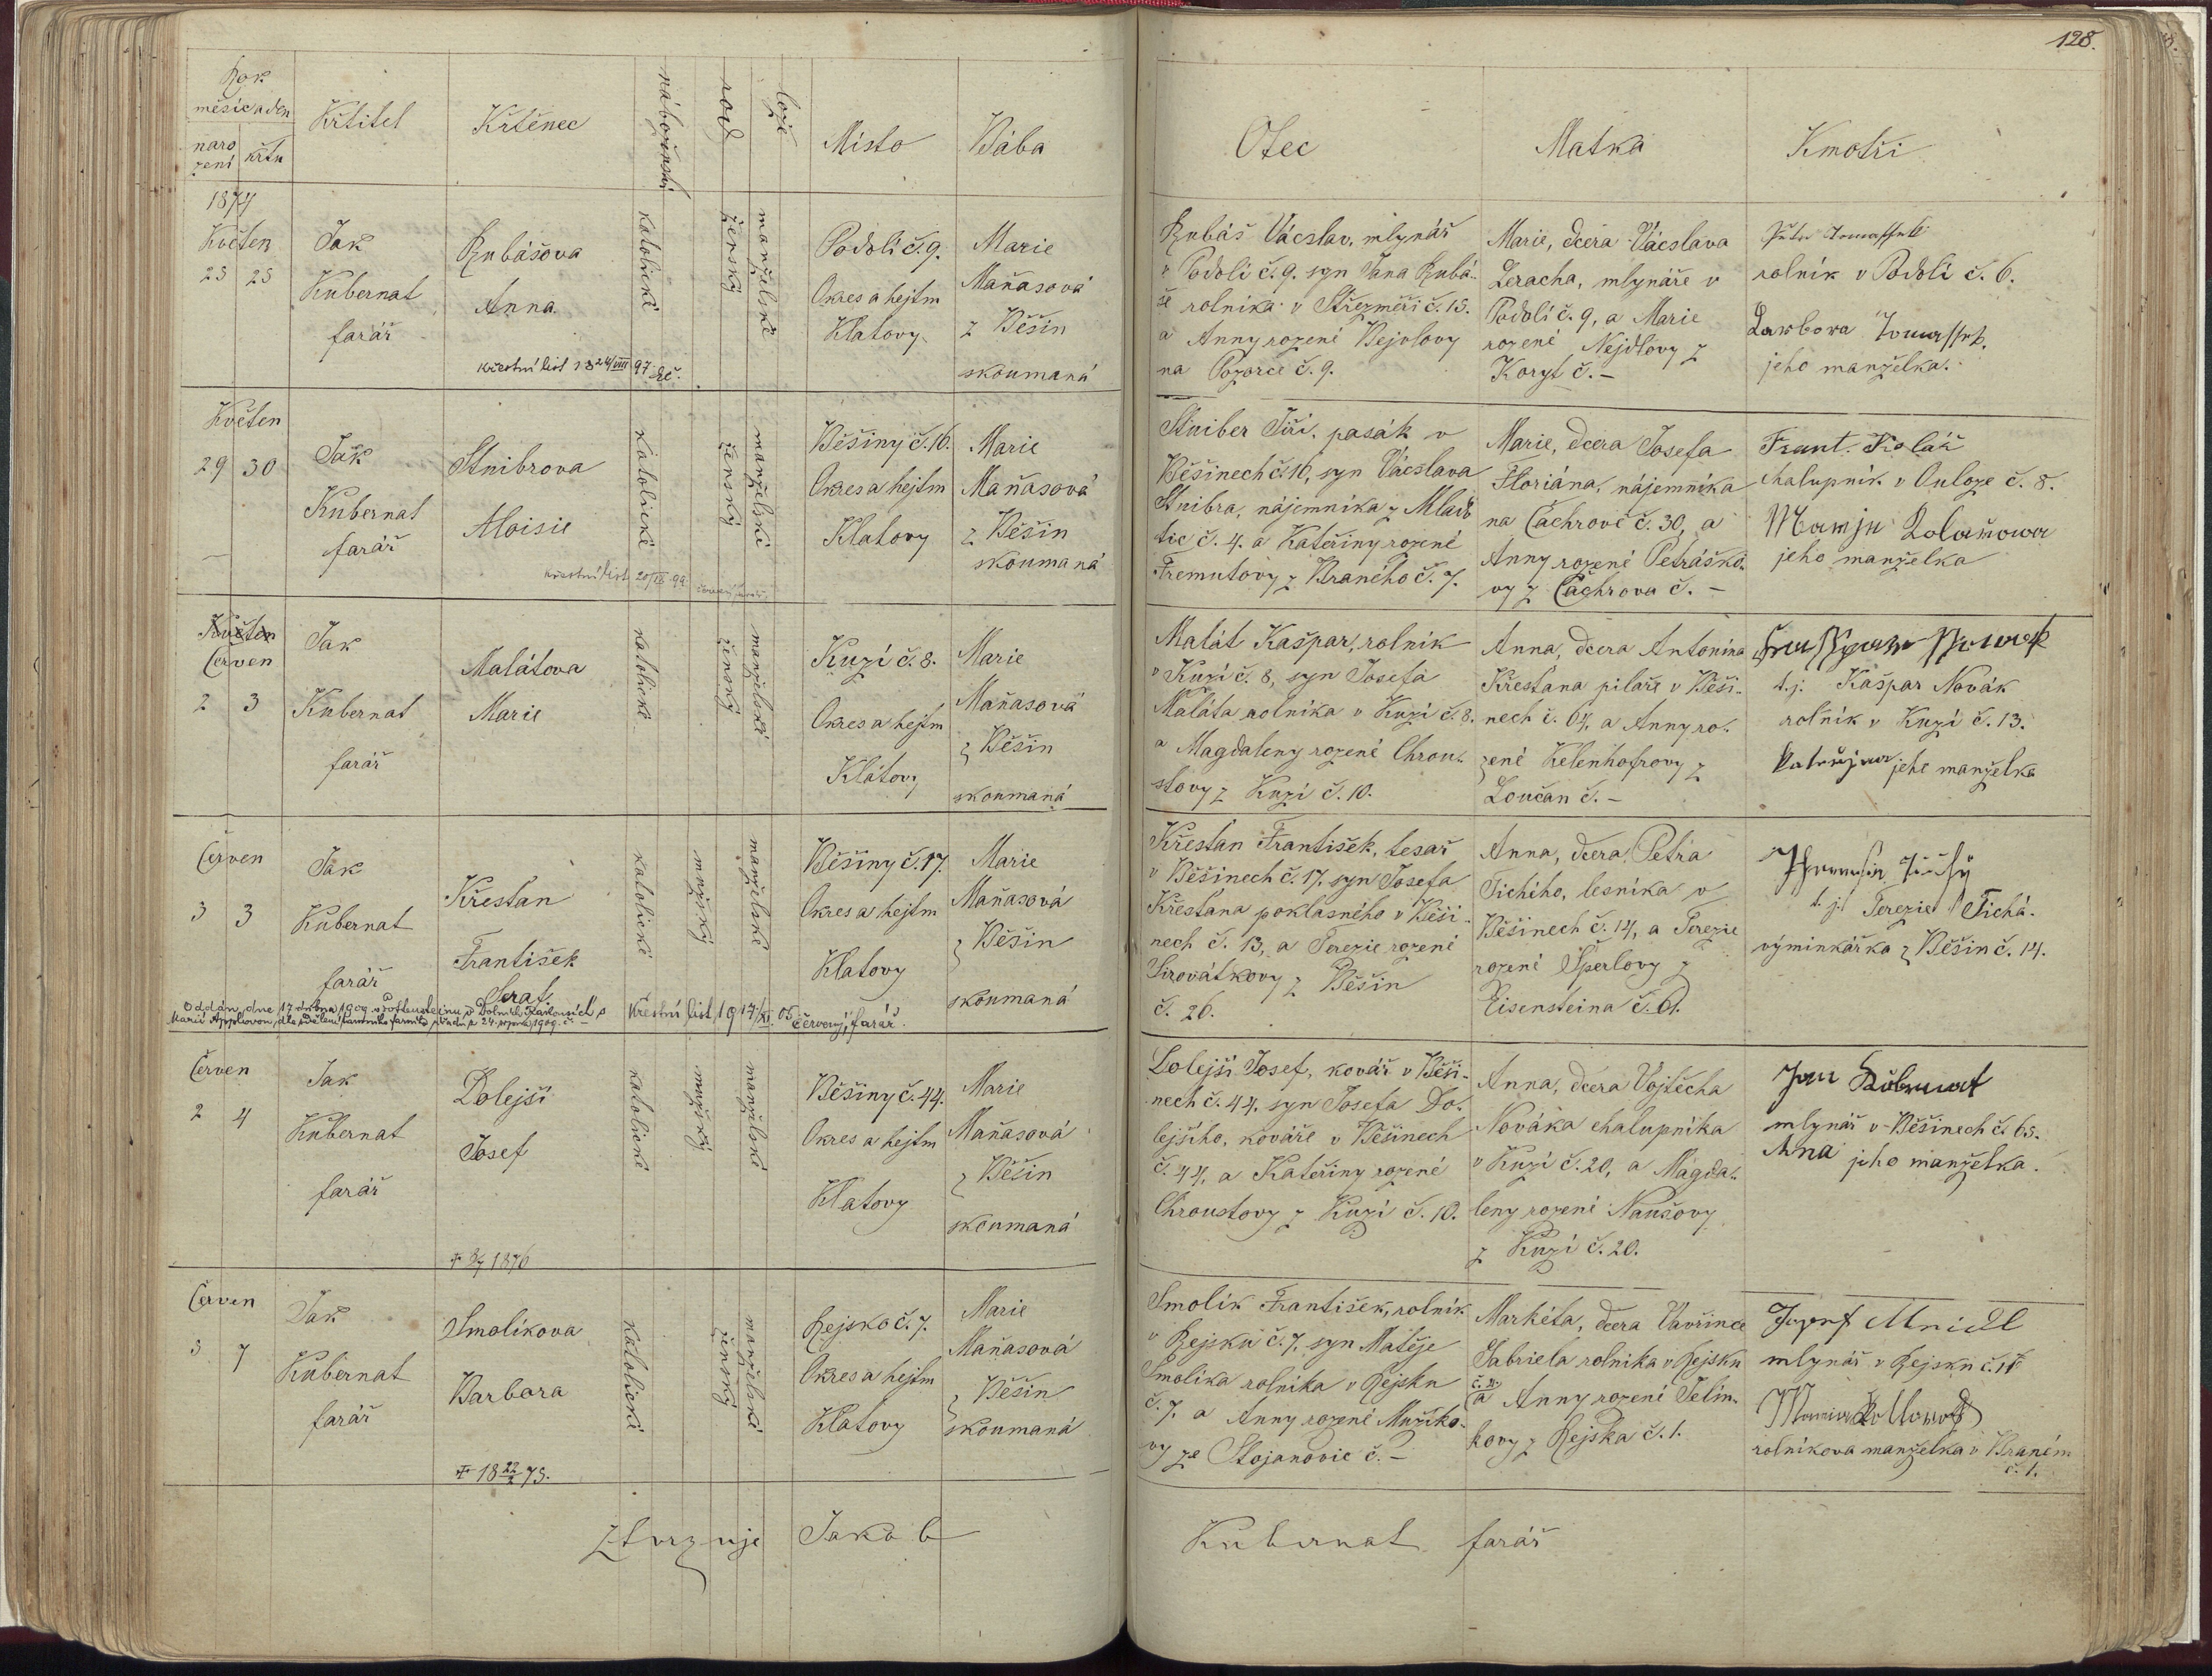 128.
Rok
měsíc a den
naro
zení
křtu
Křtitel
Křtěnec
náboženství
rod
lože
Místo
Bába
Otec
Matka
Kmotři
1874
Květen
25 25
Jak
Kubernat
farář
Rubášova
Anna
křestní list 18 24/VIII 97
katolické
ženský
manželské
Podolí č. 9.
Okres a hejtm
Klatovy
Marie
Maňasová
z Běšin
zkoumaná
Rubáš Václav, mlynář
v Podolí č. 9. syn Jana Rubá-
še rolníka v Střezměři č. 15.
a Anny rozené Bejvlovy
na Pozorce č. 9.
Marie, dcera Václava
Leracha, mlynáře v
Podolí č. 9, a Marie
rozené Nejdlovy z
Koryt č. –
rolník v Podolí č. 6.
jeho manželka.
Květen
29 30
Jak
Kubernat
farář
Stnibrova
Aloisie
křestní list 20/IX 99.
katolické
ženský
manželské
Běšiny č. 16.
Okres a hejtm
Klatovy
Marie
Maňasová
z Běšin
zkoumaná
Stniber Jiří, pasák v
Běšinech č. 16, syn Václava
Stnibra, nájemníka z Mlad
tic č. 4. a Kateřiny rozené
Fremutovy z Braného č. 7.
Marie, dcera Josefa
Floriána, nájemníka
na Čachrově č. 30, a
Anny rozené Petráško-
vy z Čachrova č. –
Frant. Kolář
chalupník v Ouloze č. 8.
jeho manželka
Květen
Červen
2 3
Jak
Kubernat
farář
Malátova
Marie
katolické
ženský
manželské
Kuzí č. 8.
Okres a hejtm
Klatovy
Marie
Maňasová
z Běšin
zkoumaná
Malát Kašpar, rolník
v Kuzí č. 8, syn Josefa
Maláta rolníka v Kuzí č. 8.
a Magdaleny rozené Chrou-
stovy z Kuzí č. 10.
Anna, dcera Antonína
Křesťana pilaře v Běši-
nech č. 64, a Anny ro-
zené Kelenhofrovy z
Loučan č. –
t. j. Kašpar Novák
rolník v Kuzí č. 13.
jeho manželka
Červen
3 3
Jak
Kubernat
farář
Křesťan
František
Seraf.
Oddán dne 17 dubna 1909
24. srpna 1909.
Křestní list 19 17/XI. 05 Červený, farář.
katolické
mužský
manželské
Běšiny č. 17.
Okres a hejtm
Klatovy
Marie
Maňasová
z Běšin
zkoumaná
Křesťan František, tesař
v Běšinech č. 17. syn Josefa
Křesťana poklasného v Běši-
nech č. 13, a Terezie rozené
Sirovátkovy z Běšin
č. 26.
Anna, dcera Petra
Tichího, lesníka v
Běšinech č. 14, a Terezie
rozené Šperlovy z
Eisensteina č. 61.
t. j. Terezie Tichá.
výminkářka z Běšin č. 14.
Červen
2 4
Jak
Kubernat
farář
Dolejší
Josef
1876
katolické
mužský
manželské
Běšiny č. 44.
Okres a hejtm
Klatovy
Marie
Maňasová
z Běšin
zkoumaná
Dolejší Josef, kovář v Běši-
nech č. 44. syn Josefa Do-
lejšího, kováře v Běšinech
č. 44, a Kateřiny rozené
Chroustovy z Kuzí č. 10.
Anna, dcera Vojtěcha
Nováka chalupníka
v Kuzí č. 20, a Magda-
leny rozené Naušovy
z Kuzí č. 20.
Jan Kubernat
mlynář v Běšinech č. 65.
Anna jeho manželka.
Červen
3 7
Jak
Kubernat
farář
Smolíkova
Barbora
✝ 18 22/2 75.
katolické
ženský
manželské
Rejsko č. 7.
Okres a hejtm
Klatovy
Marie
Maňasová
z Běšin
zkoumaná
Smolík František, rolník
v Rejsku č. 7. syn Matěje
Smolíka rolníka v Rejsku
č. 7. a Anny rozené Mužíko-
vy ze Stojanovic č. –
Markéta, dcera Vavřince
Gabriela rolníka v Rejsku
a Anny rozené Jelín-
kovy z Rejska č. 1.
Jozef Mnidl
mlynář v Rejsku č. 11
rolníkova manželka v Braném
č. 1.
ztvrzuje Jakob Kubernat farář